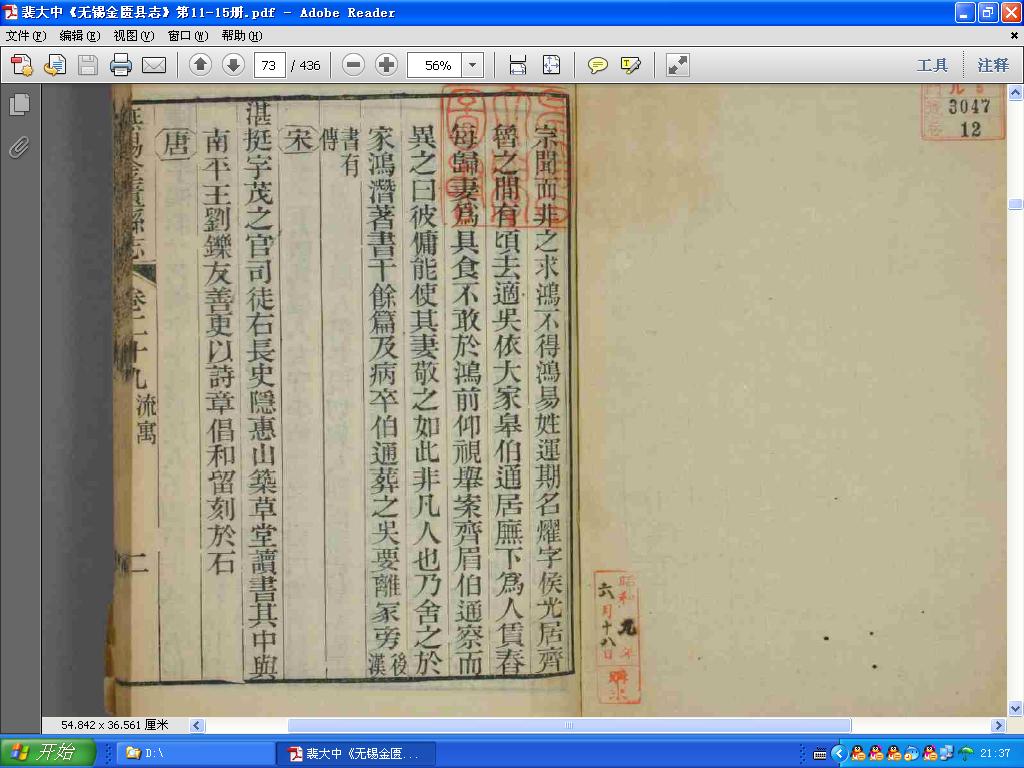 裴大中《无锡金匮县志》第11-15册.pdf - Adobe Reader
文件(F) 编辑(E) 视图(V) 窗口(W) 帮助(H)
73 / 436
56%
工具 注释
3047
12
宗聞而非之求鴻不得鴻易姓運期名燿字侯光居齊
魯之間有頃去適吳依大家皋伯通居廡下爲人賃舂
每歸妻爲具食不敢於鴻前仰視舉案齊眉伯通察而
異之曰彼傭能使其妻敬之如此非凡人也乃舍之於
家鴻潛著書十餘篇及病卒伯通葬之吳要離冢旁後漢
書有
傳
宋
湛挺字茂之官司徒右長史隱惠山築草堂讀書其中與
南平王劉鑠友善更以詩章倡和留刻於石
唐
無錫金匱縣志
卷二十九 流寓
二
昭和 九 年
六月十八日
54.842 x 36.561 厘米
开始
D:\
裴大中《无锡金匮...
21:37